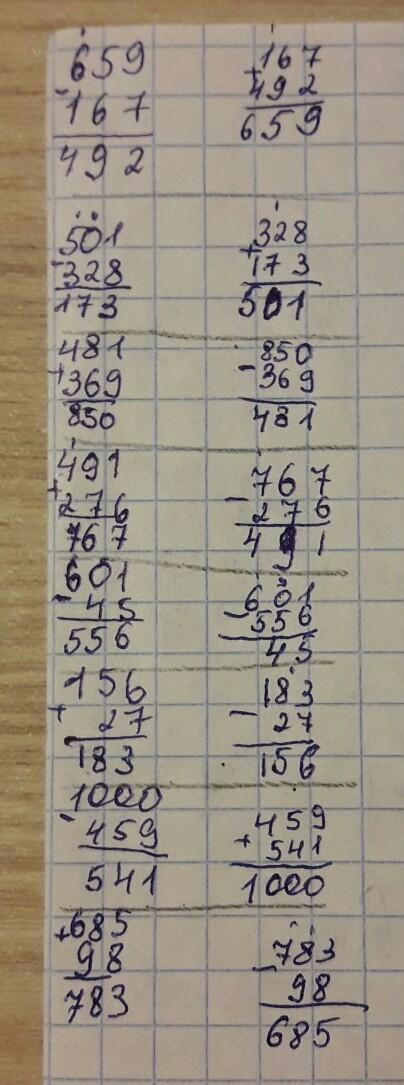 659
- 167
492
167
+ 492
659
501
- 328
173
328
+ 173
501
481
+ 369
850
850
- 369
481
491
+ 276
767
767
- 276
491
601
- 45
556
601
- 556
45
156
+ 27
183
183
- 27
156
1000
- 459
541
459
+ 541
1000
+ 685
98
783
783
- 98
685